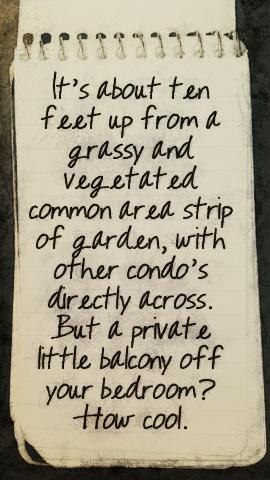 It's about ten
feet up from a
grassy and
vegetated
common area strip
of garden, with
other condo's
directly across.
But a private
little balcony off
your bedroom?
How cool.